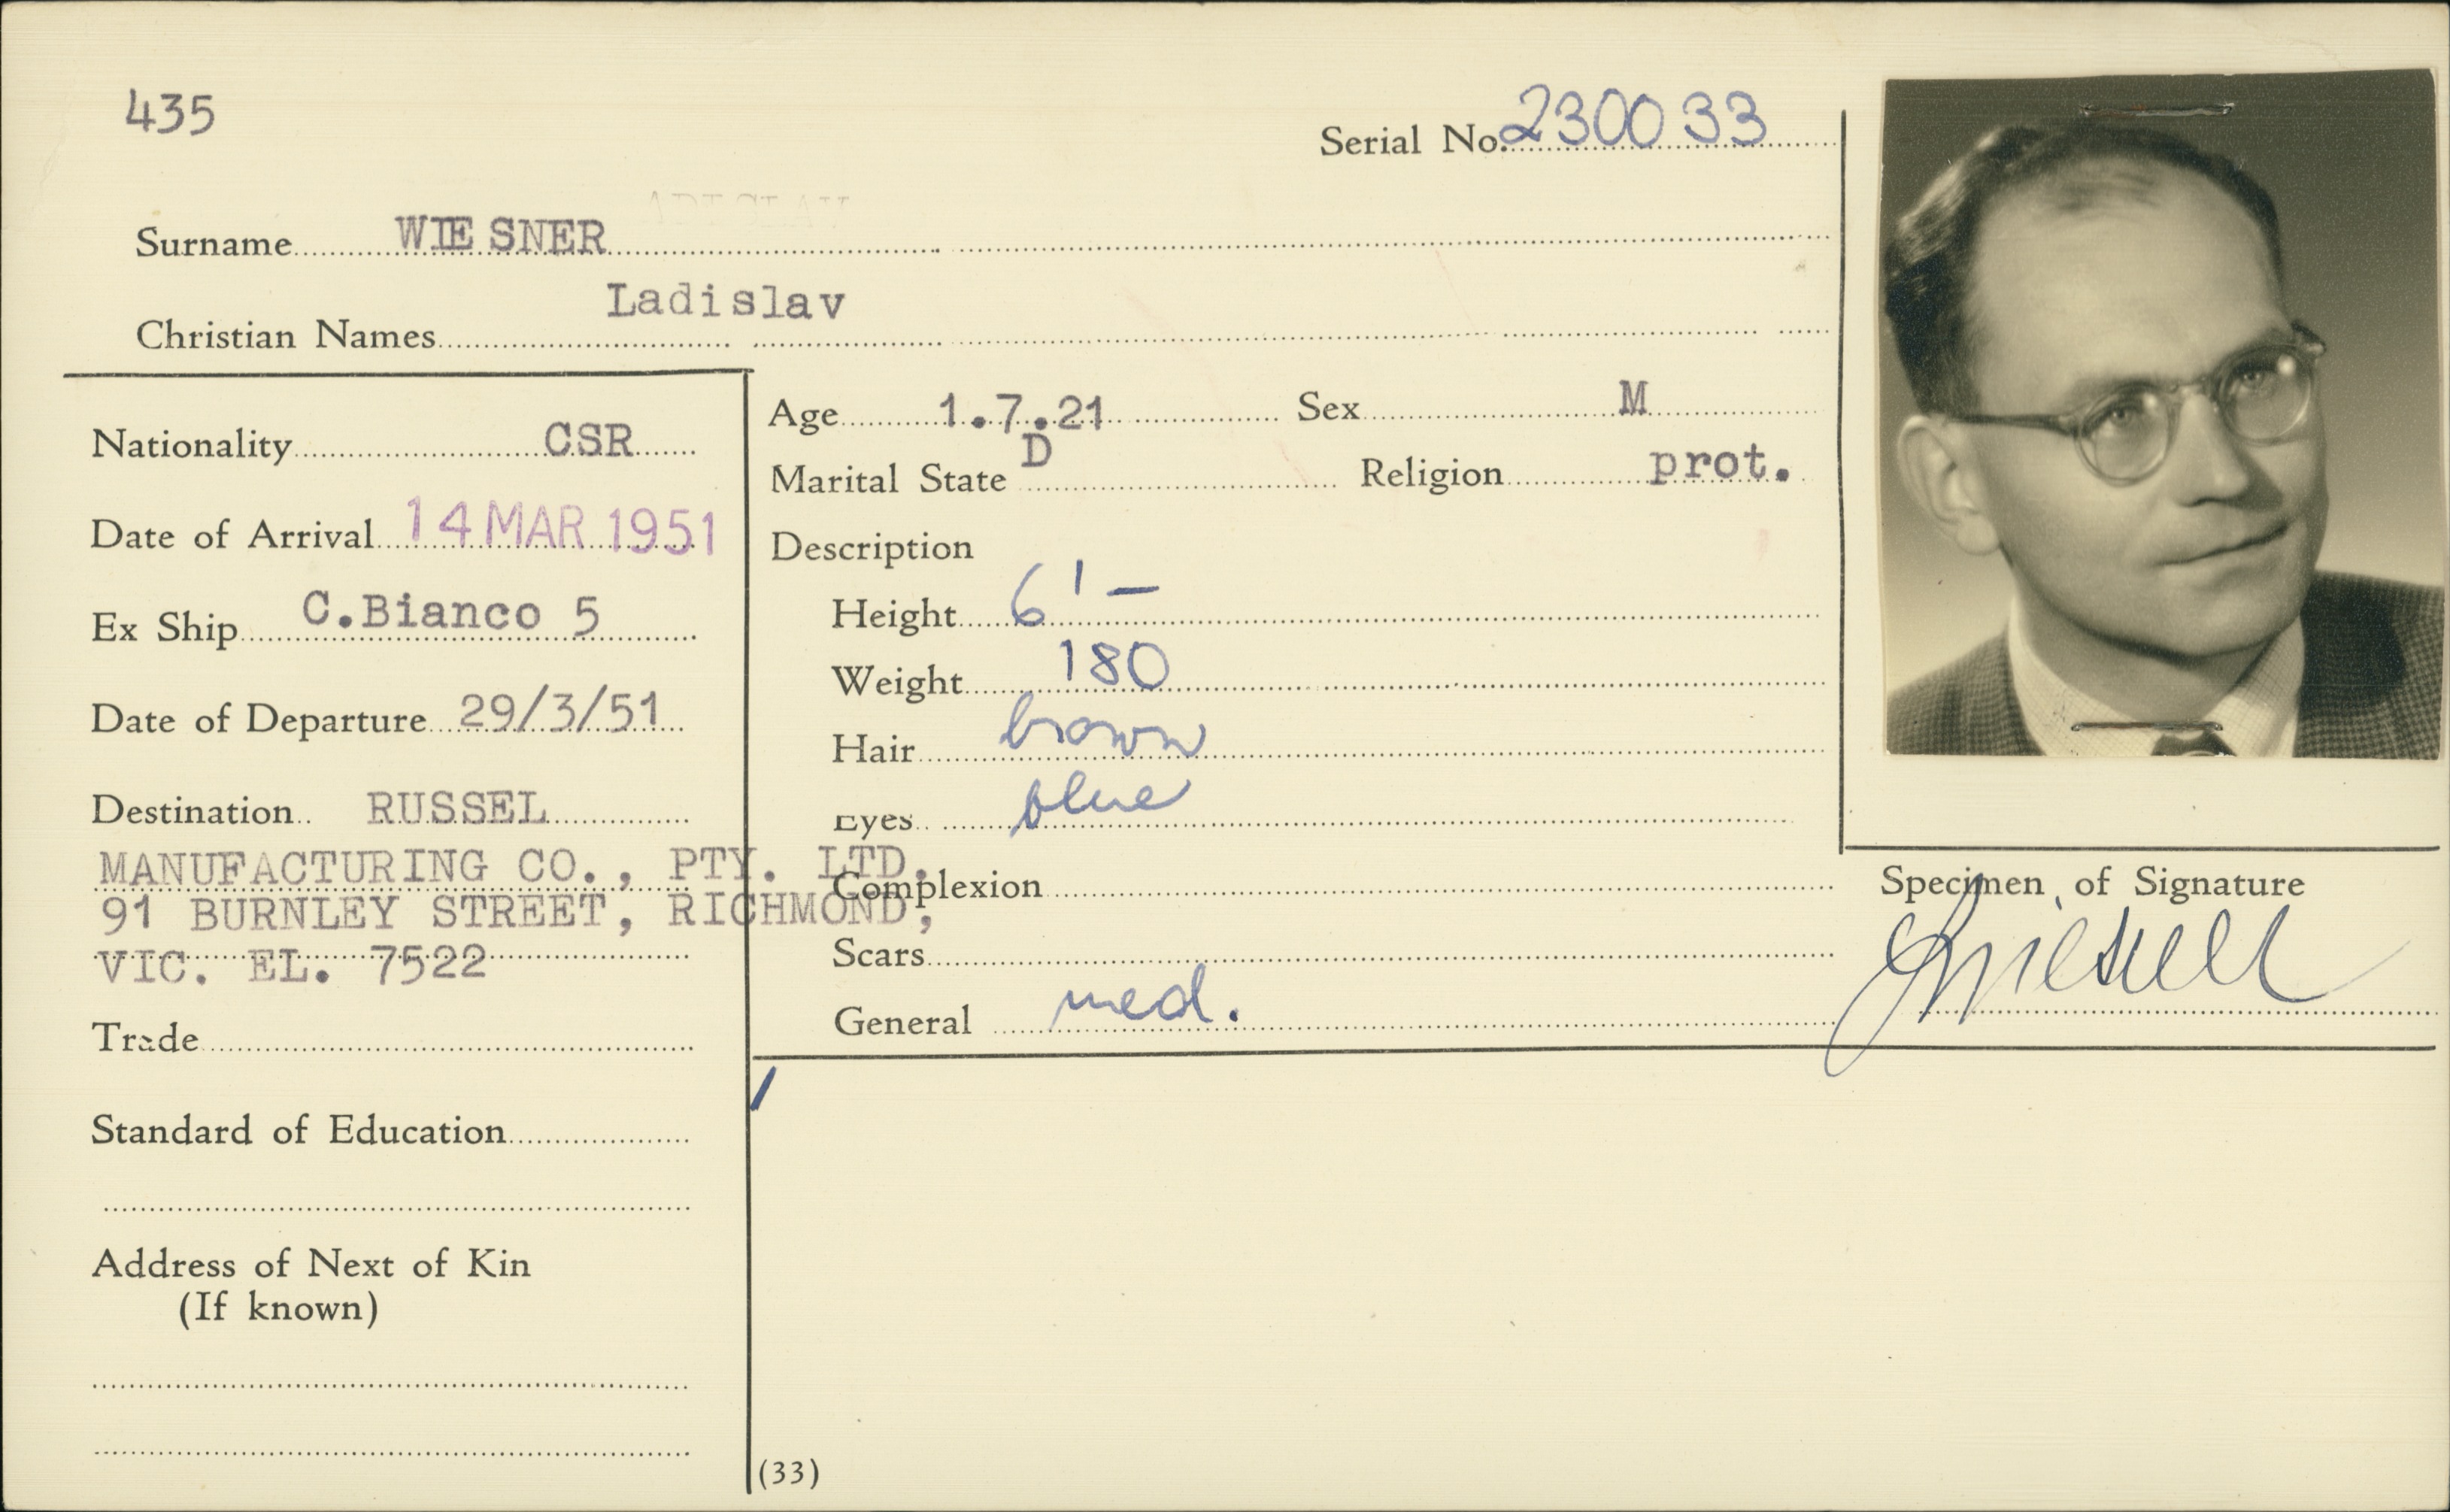 435
Serial No. 230033
Surname WIESNER
Ladislav
Christian Names
Nationality CSR
Age 1.7.21 Sex M
Marital State D Religion prot.
Date of Arrival 14 MAR 1951
Description
Ex Ship C.Bianco 5
Height 6' —
Weight 180
Date of Departure 29/3/51
Hair brown
Destination RUSSEL
Eyes blue
MANUFACTURING CO., PTY. LTD.
Complexion
91 BURNLEY STREET, RICHMOND,
VIC. EL. 7522
Scars
General med.
Specimen of Signature
Trade
Standard of Education
Address of Next of Kin
(If known)
(33)